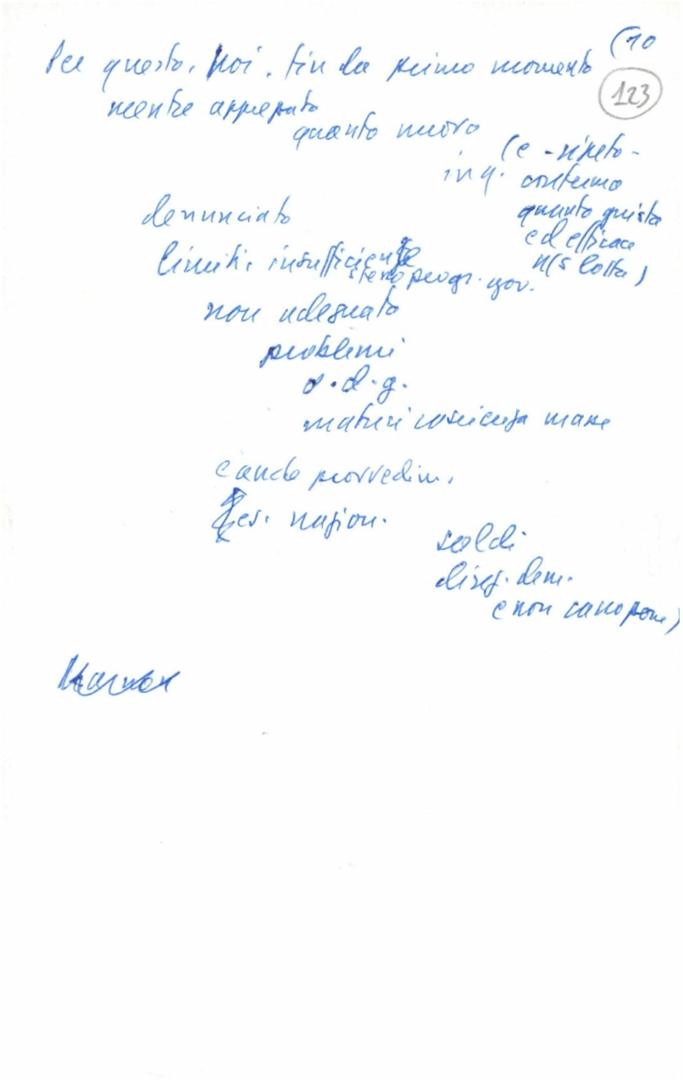 (10
123
Per questo, noi, fin da primo momento
mentre apprezzato
quanto nuovo
(e - ripeto -
in q. conferma
quanto giusta
ed efficace
n/s lotta)
denunciato
limiti, insufficienze
stesso progr. gov.
non adeguato
problemi
o.d.g.
maturi coscienza masse
e anche provvedim.
nazion.
soldi
diseg. dem.
e non